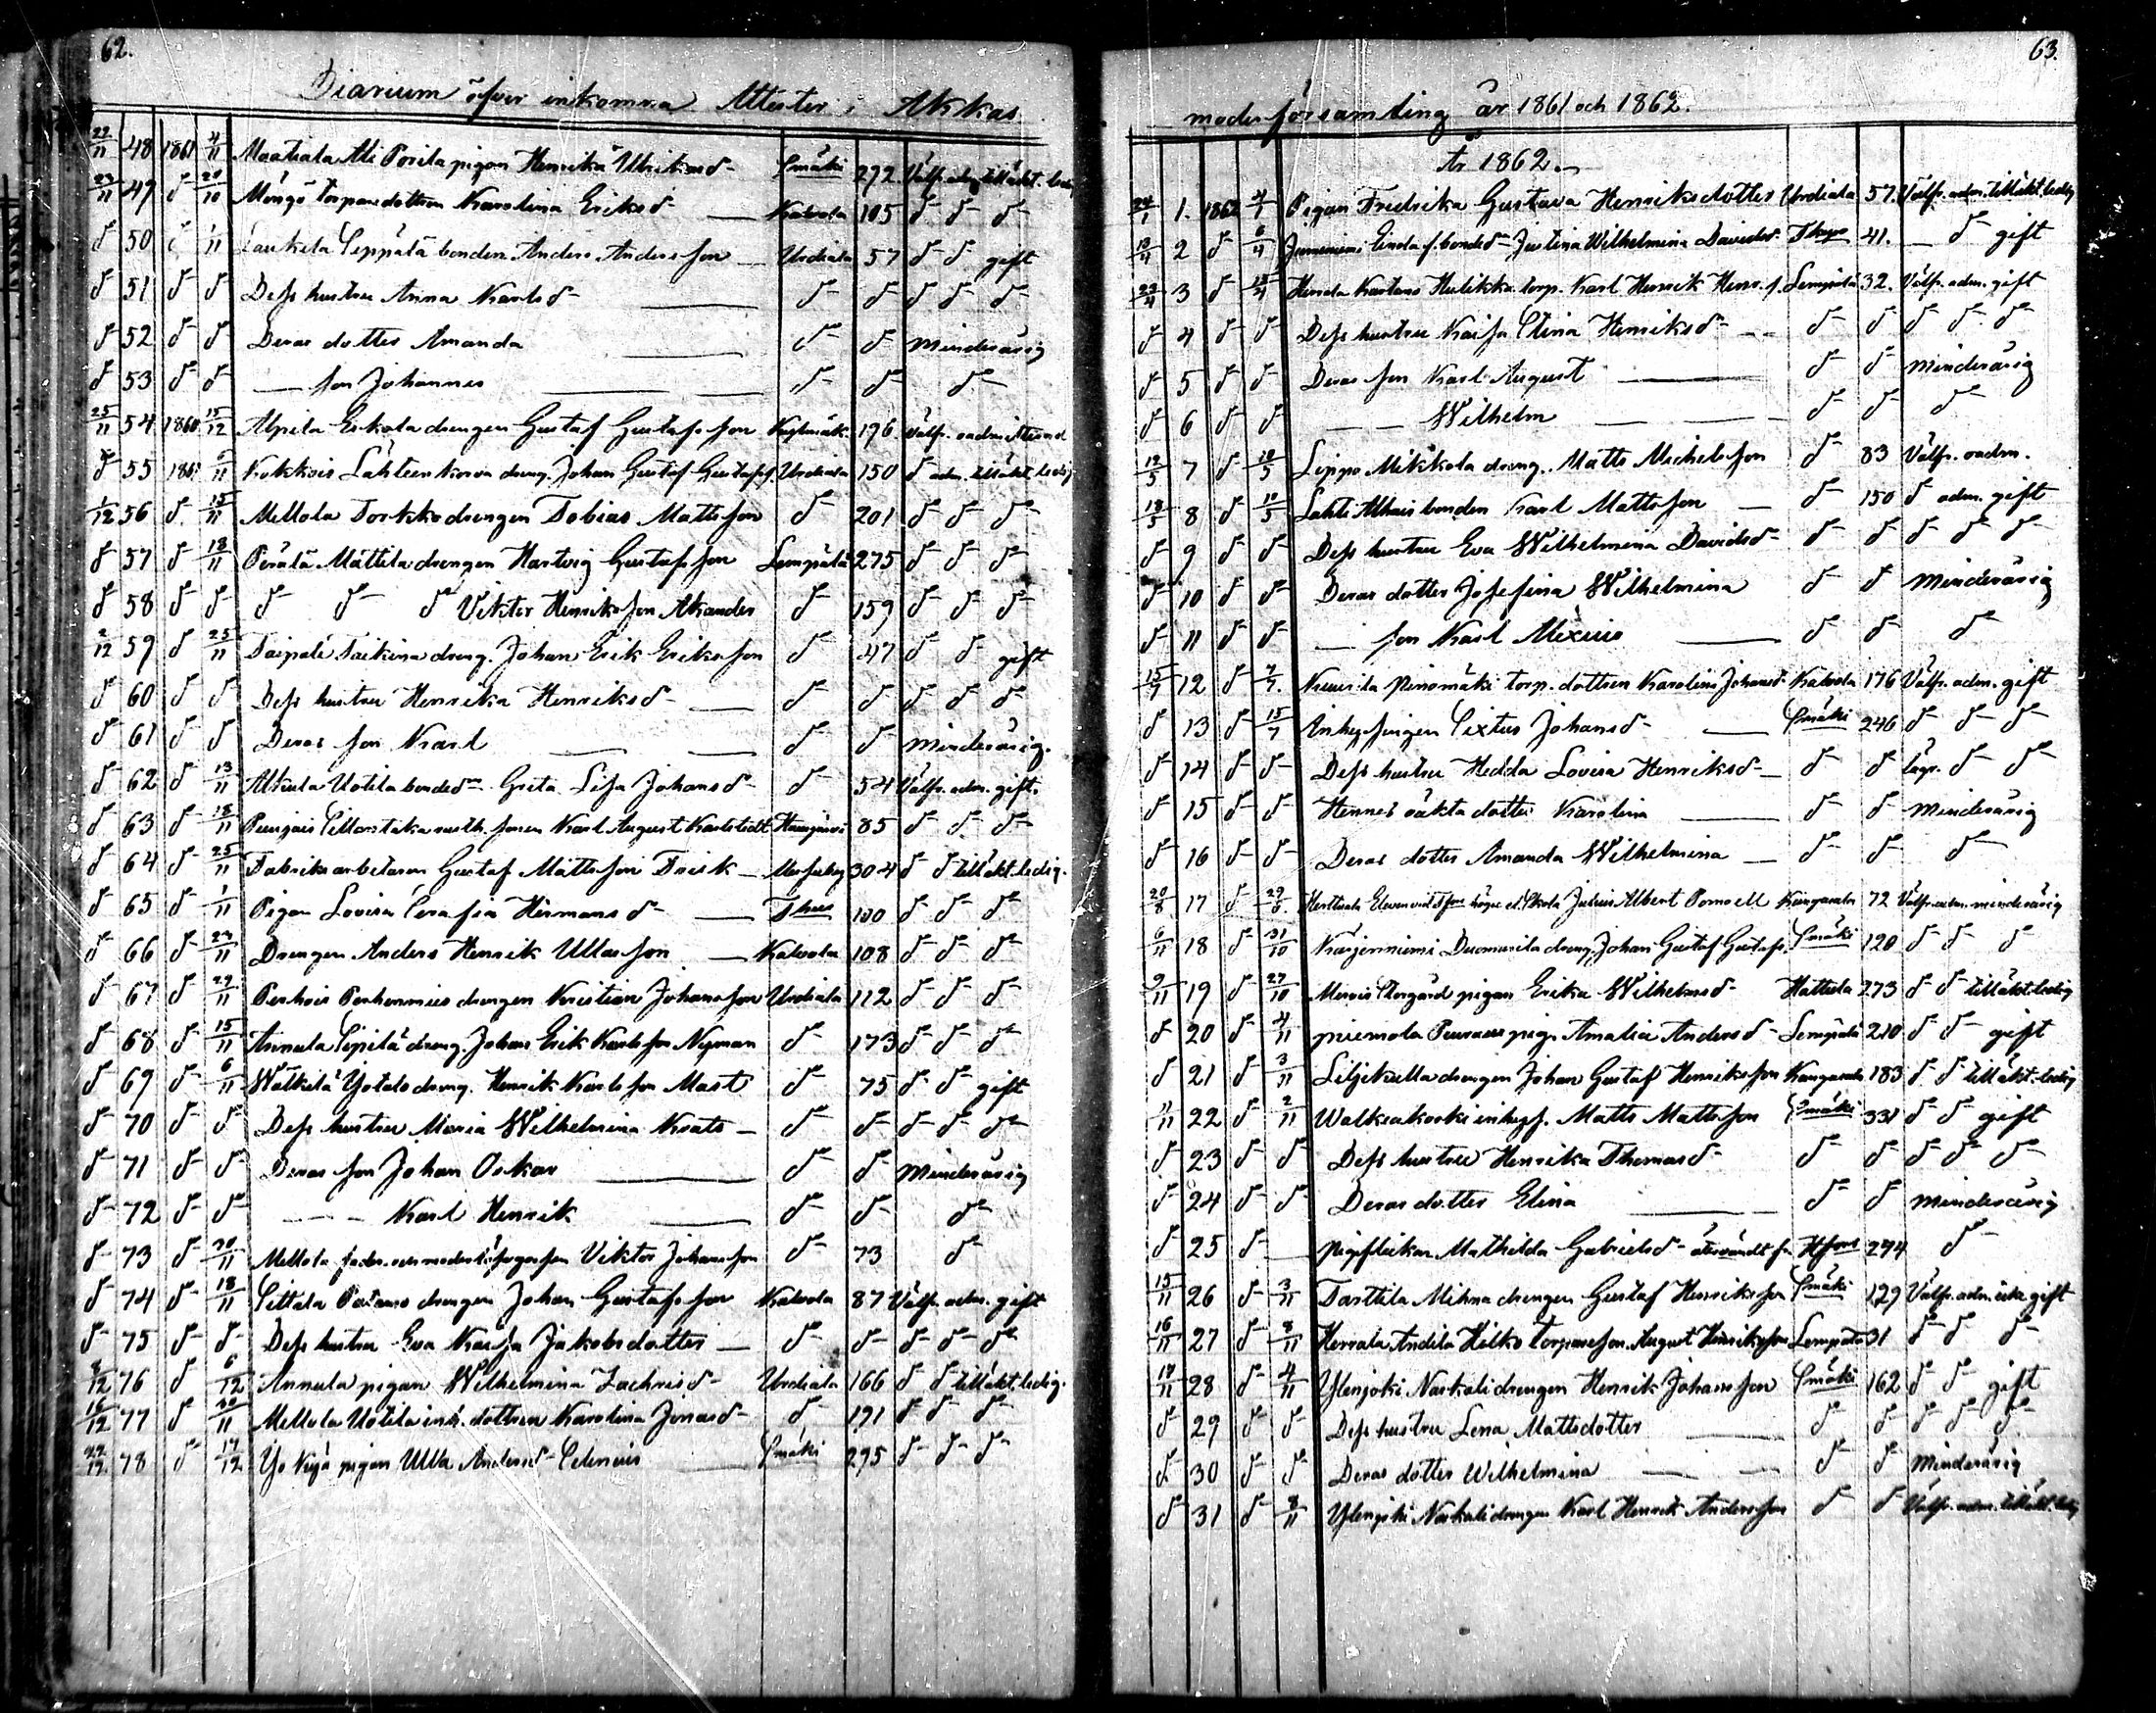 62.
Diarium öfver inkomna Attester i Akkas
22/11 48 1861 4/11 Alle Porila pigan Henrika Ulrikasd- Smäki 272 Välfr. adm. tillåkt. ledig
23/11 49 d- 20/10 torparedottren Karolina Eriksd- Kalvola 105 d- d- d-
d- 50 d- 1/11 Laukela Seppälä bonden Anders Andersson Urdiala 57 d- d- gift
d- 51 d- d- Dess hustru Anna Karlsd- d- d- d- d-
d- 52 d- d- Deras dotter Amanda d- d- minderårig
d- 53 d- d- — son Johannes d- d- d-
25/11 54 1860 15/12 Erkola drengen Gustaf Gustafsson 196 Välfr. oadmitterad
d- 55 1861 Kokkois Lähteenkorva dreng. Johan Gustaf Gustafss. Urdiala 150 d- adm. tillåkt. ledig
1/12 56 d- 15/11 Mellola Torkko drengen Tobias Mattsson d- 201 d- d- d-
d- 57 d- 18/11 Perälä Mattila drengen Hartvig Gustafsson Lempälä 275 d- d- d-
d- 58 d- d- d- d- d- Viktor Henriksson Akander d- 159 d- d- d-
2/12 59 d- 25/11 Taipale dreng. Johan Erik Eriksson d- 47 d- d- gift
d- 60 d- d- Dess hustru Henrika Henriksd- d- d- d- d- d-
d- 61 d- d- Deras son Karl d- d- minderårig.
d- 62 d- 13/11 Uotila bonded- Greta Lisa Johansd- d- 54 Välfr. adm. gift.
d- 63 d- 18/11 sonen Karl August Karlstedt 85 d- d- d-
d- 64 d- 25/11 Fabriksarbetaren Gustaf Mattsson Frisk 304 d- d- tillåkt. ledig.
d- 65 d- 1/11 Pigan Lovisa Serafia Hermansd- Thus 100 d- d- d-
d- 66 d- 23/11 Drengen Anders Henrik Ullasson Kalvola 108 d- d- d-
d- 67 d- 29/11 Perhois Perhonmies drengen Kristian Johansson Urdiala 112 d- d- d-
d- 68 d- 15/11 Annula Sipilä dreng. Johan Erik Karlsson Nyman d- 173 d- d- d-
d- 69 d- 6/11 Wälkilä Yotalo dreng. Henrik Karlsson Mast d- 75 d- d- gift
d- 70 d- d- Dess hustru Maria Wilhelmina Krats d- d- d- d-
d- 71 d- d- Deras son Johan Oskar d- d- minderårig
d- 72 d- d- — Karl Henrik d- d- d-
d- 73 d- 20/11 Mellola fader och moderlösa Viktor Johansson d- 73 d-
d- 74 d- 18/11 Sittala drengen Johan Gustafsson Kalvola 87 Välfr. adm. gift
d- 75 d- d- Dess hustru Eva Kajsa Jakobsdotter d- d- d- d- d-
8/12 76 d- 6/12 Annula pigan Wilhelmina Zachrisd- Urdiala 166 d- d- tillåkt. ledig.
16/12 77 d- 20/11 Mellola Uotila inh. dottren Karolina Jonasd- d- 191 d- d- d-
22/12 78 d- 17/12 pigan Ulla Andersd- Selenius Smäki 295 d- d- d-
63.
moderförsamling år 1861 och 1862.
År 1862.
24/1 1. 1862 4/1 Pigan Fredrika Gustava Henriksdotter Urdiala 57. Välfr. adm. tillåkt. ledig
13/4 2 d- 6/4 Justina Wilhelmina Davidsd- 41. — d- gift
22/4 3 d- 15/4 Kartano torp. Karl Henrik Henr.s. Lempälä 32. Välfr. adm. gift
d- 4 d- d- Dess hustru Kajsa Stina Henriksd- d- d- d- d- d-
d- 5 d- d- Deras son Karl August d- d- minderårig
d- 6 d- d- — Wilhelm d- d- d-
12/5 7 d- 10/5 Mikkola dreng. Matts Michelsson d- 83 Välfr. oadm.
18/5 8 d- 10/5 Lahti bonden Karl Mattsson d- 150 d- adm. gift
d- 9 d- d- Dess hustru Eva Wilhelmina Davidsd- d- d- d- d- d-
d- 10 d- d- Deras dotter Josefina Wilhelmina d- d- minderårig
d- 11 d- d- — son Karl Alexius d- d- d-
15/7 12 d- 7/7. torp. dottren Karolina Johansd- Kalvola 176 Välfr. adm. gift
d- 13 d- 15/7 Inhysingen Sixtus Johansd- Smäki 246 d- d- d-
d- 14 d- d- Dess hustru Hedda Lovisa Henriksd- d- d- d- d-
d- 15 d- d- Hennes oäkta dotter Karolina d- d- minderårig
d- 16 d- d- Deras dotter Amanda Wilhelmina d- d- d-
20/8 17 d- Eleven vid Julius Albert Kangasala 72 minderårig
6/11 18 d- 31/10 dreng. Johan Gustaf Gustafs. Smäki 120 d- d- d-
9/11 19 d- 27/10 pigan Erika Wilhelmsd- Hattula 273 d- d- tillåkt. ledig
d- 20 d- 4/11 pig. Amalia Andersd- Lempälä 210 d- d- gift
d- 21 d- 3/11 Liljekulla drengen Johan Gustaf Henriksson Kangasala 183 d- d- tillåkt. ledig
11/11 22 d- 2/11 Walkeakoski inhys. Matts Mattsson Smäki 331 d- d- gift
d- 23 d- d- Dess hustru Henrika Thomasd- d- d- d- d- d-
d- 24 d- d- Deras dotter Elina d- d- minderårig
d- 25 d- — Mathilda Gabrielsd- återsändt fr. Hfors 294 d-
15/11 26 d- 3/11 Tarttila drengen Gustaf Henriksson Smäki 129 Välfr. adm. gift
16/11 27 d- 8/11 torpareson. August Henriksson Lempälä 31 d- d- d-
17/11 28 d- 4/11 Ylenjoki Naskali drengen Henrik Johansson Smäki 162 d- d- gift
d- 29 d- d- Dess hustru Lena Mattsdotter d- d- d- d- d-
d- 30 d- d- Deras dotter Wilhelmina d- d- minderårig
d- 31 d- 8/11 Ylenjoki Naskali drengen Karl Henrik Andersson d- d- Välfr. adm. tillåkt. ledig